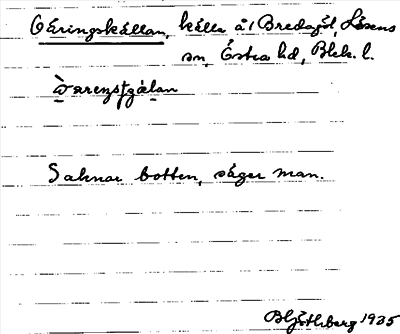 Væringskällan, källa å 1 Bredagöl, Lösens
sn, Östra hd, Blek. l.
Saknar botten, säger man.
1935